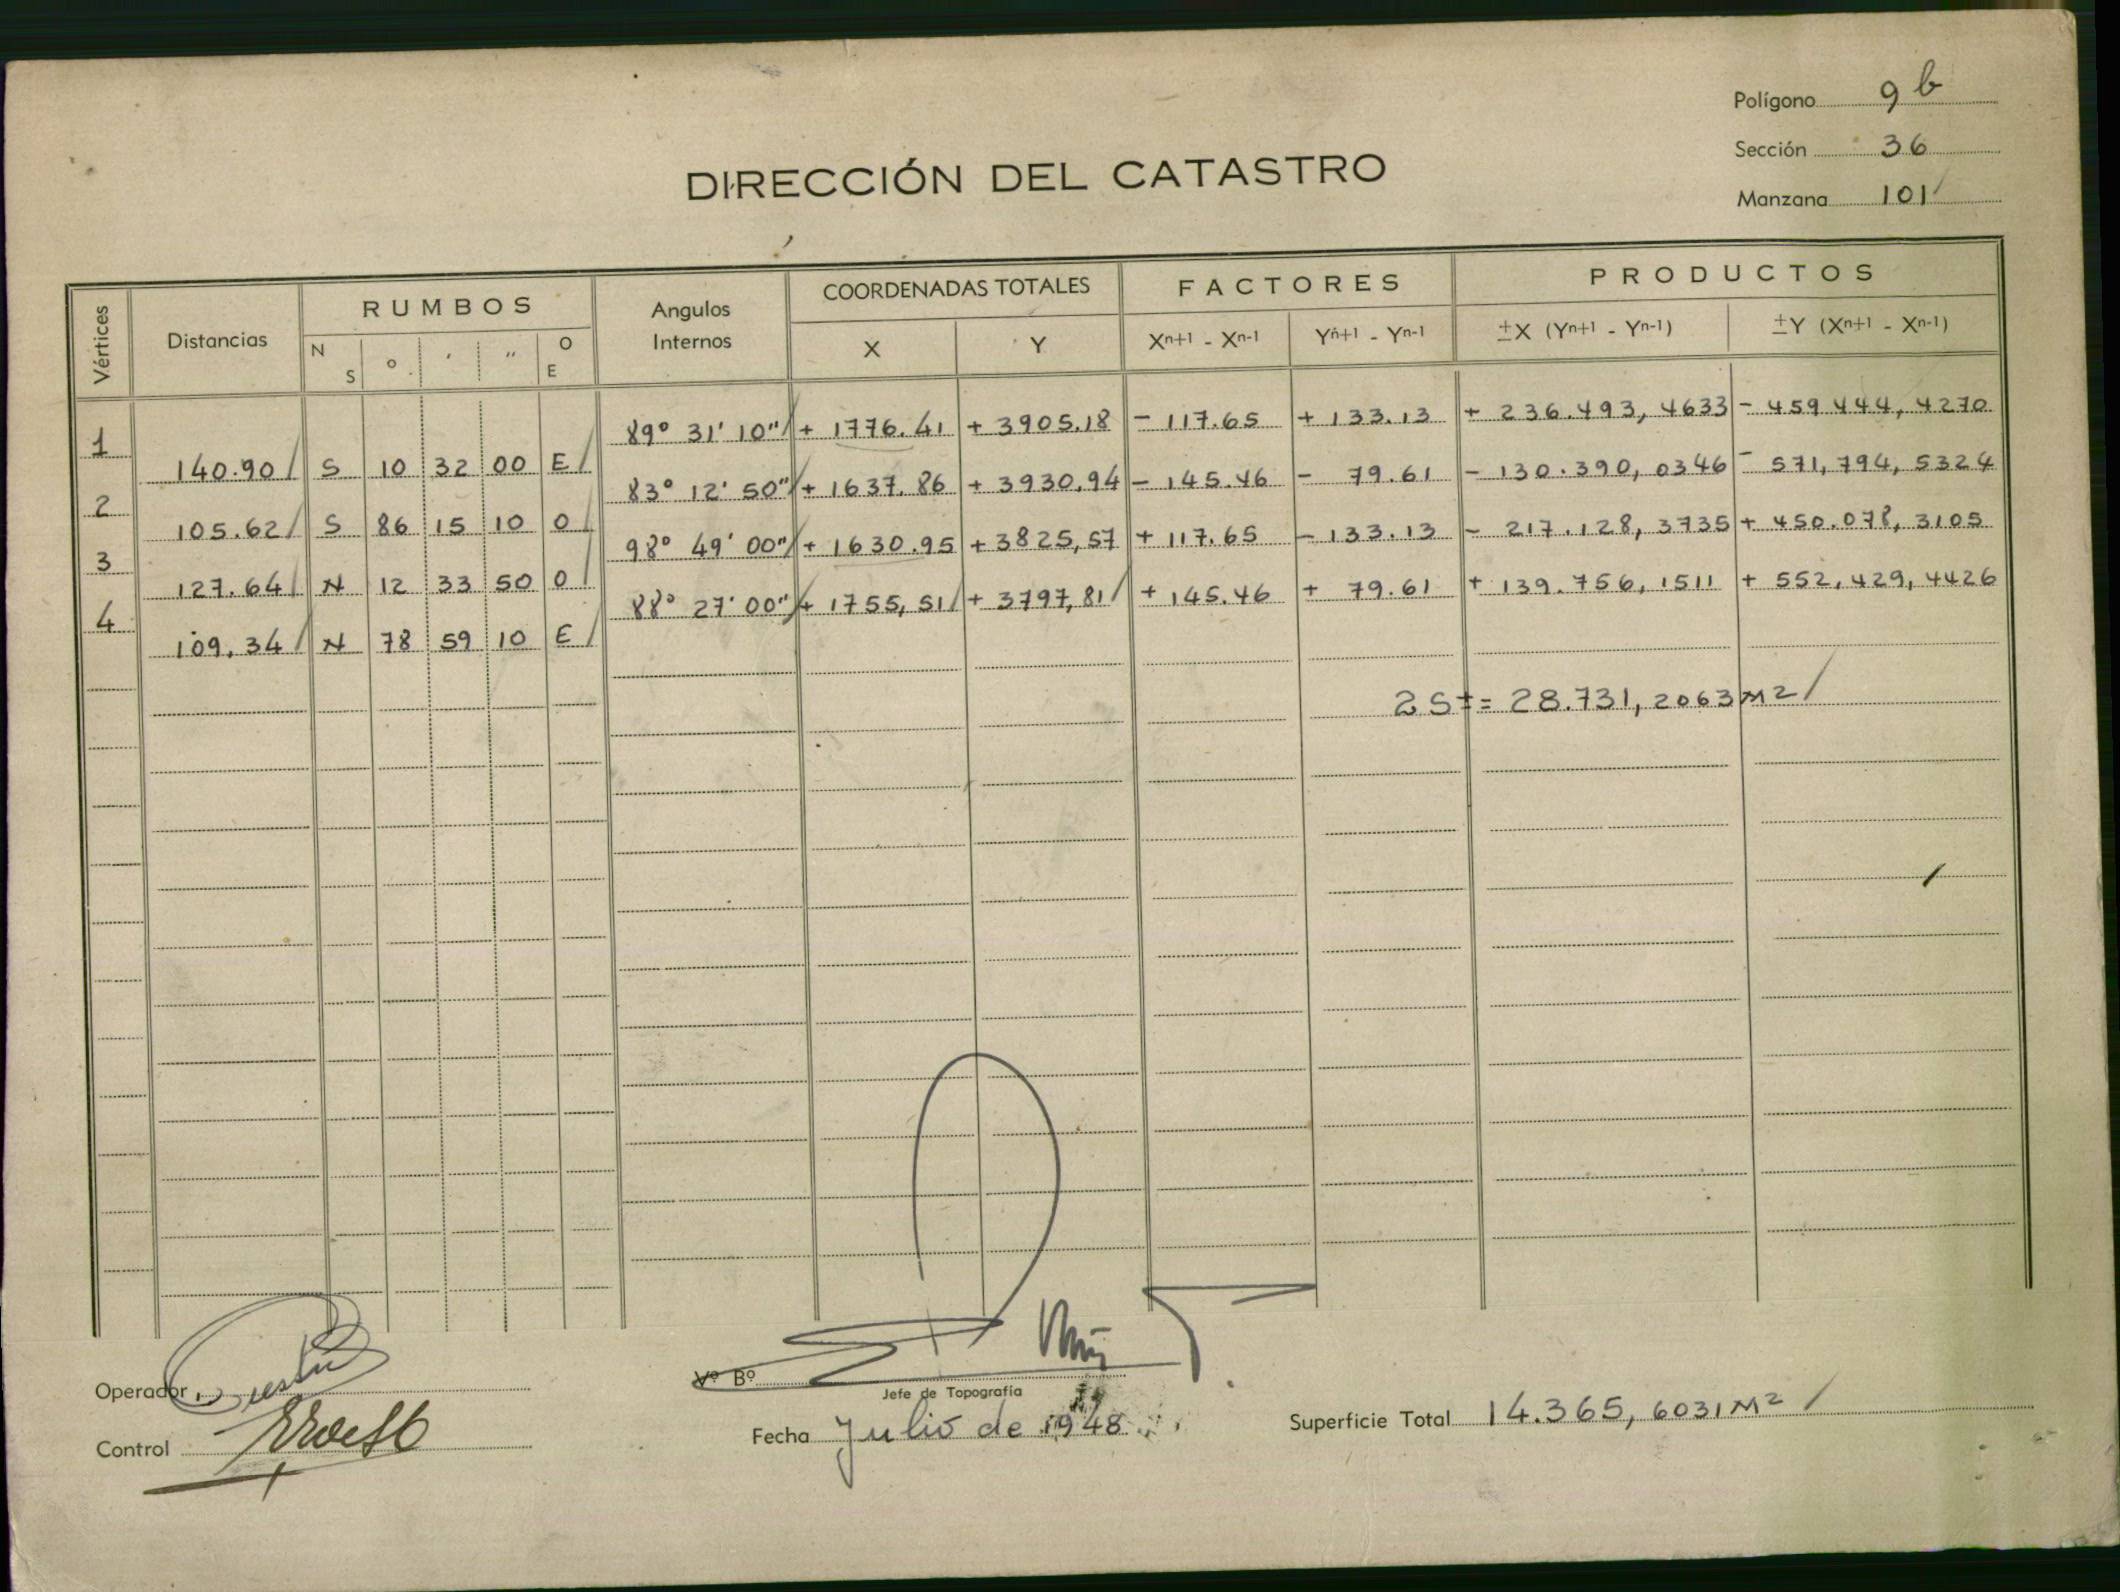 Polígono 9 b
Sección 36
Manzana 101
DIRECCIÓN DEL CATASTRO
Vértices Distancias RUMBOS Angulos Internos COORDENADAS TOTALES FACTORES PRODUCTOS
N S ° ' " O E X Y Xn+1 - Xn-1 Yn+1 - Yn-1 ±X (Yn+1 - Yn-1) ±Y (Xn+1 - Xn-1)
1 89° 31' 10" + 1776.41 + 3905.18 - 117.65 + 133.13 + 236.493,4633 - 459 444,4270
140.90 S 10 32 00 E
2 83° 12' 50" + 1637.86 + 3930.94 - 145.46 - 79.61 - 130.390,0346 - 571,794,5324
105.62 S 86 15 10 O
3 98° 49' 00" + 1630.95 + 3825,57 + 117.65 - 133.13 - 217.128,3735 + 450.078,3105
127.64 N 12 33 50 O
4 88° 27' 00" + 1755,51 + 3797,81 + 145.46 + 79.61 + 139.756,1511 + 552,429,4426
109,34 N 78 59 10 E
2 S± = 28.731,2063 M2
Operador
Vº Bº
Jefe de Topografía
Control
Fecha Julio de 1948
Superficie Total 14.365,6031 M2